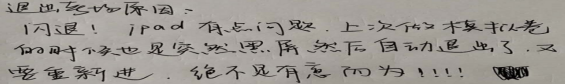 退出考场原因：
闪退！ipad 有点问题．上次做模拟卷
的时候也是突然黑屏然后自动退出了．又
要重新进．绝不是有意而为！！！！